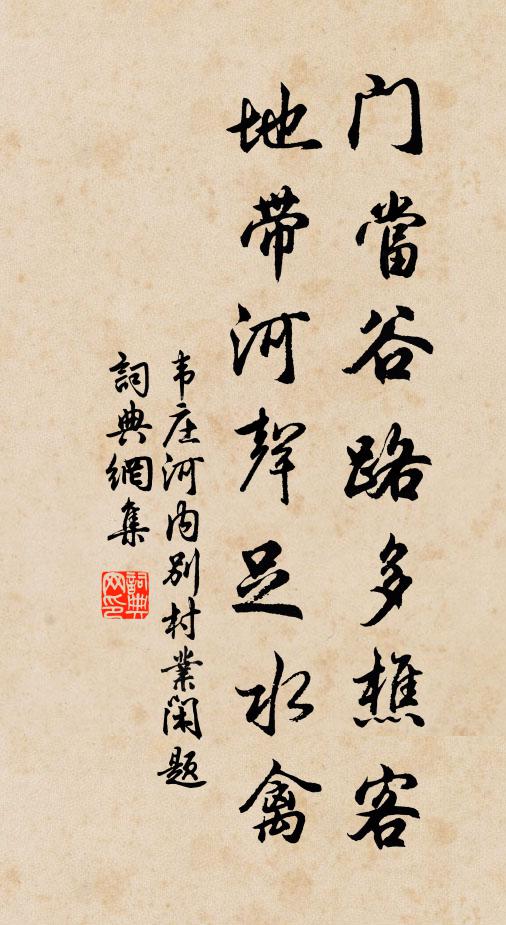 门當谷路多樵客
地带河聲足水禽
韦庄河内别村業闲題
詞典網集
詞典网印